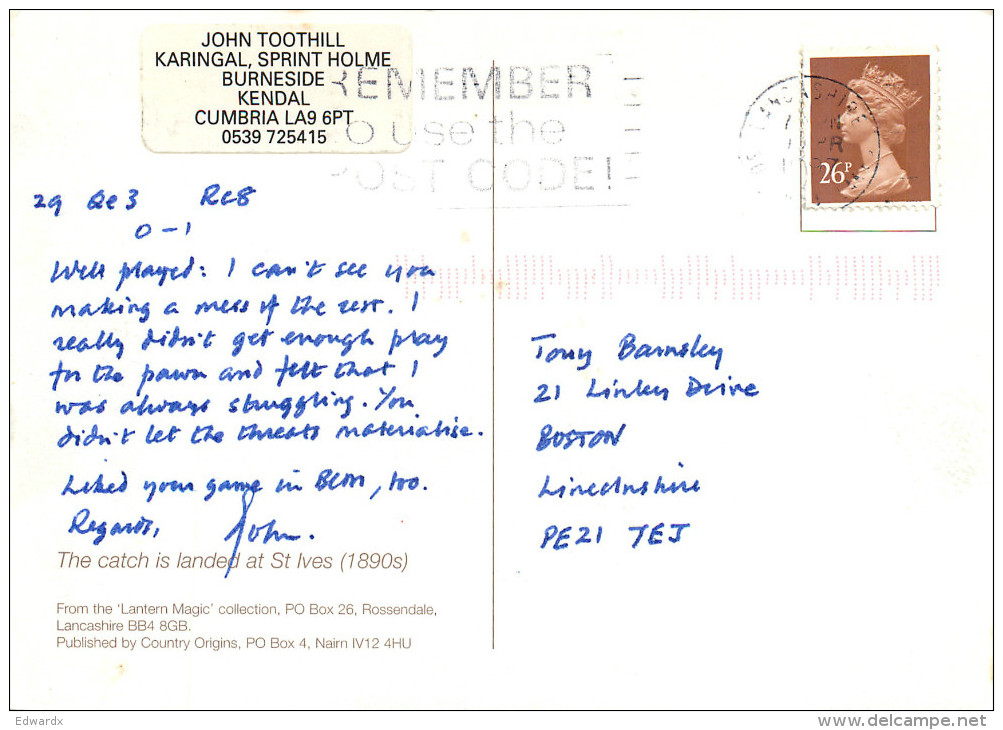 JOHN TOOTHILL
KARINGAL, SPRINT HOLME
BURNESIDE
KENDAL
CUMBRIA LA9 6PT
0539 725415
REMEMBER
TO use the
POST CODE!
LANCASHIRE
26P
29 Qe3 Rc8
0-1
Well played: I can't see you
making a mess of the rest. I
really didn't get enough play
for the pawn and felt that I
was always struggling. You
didn't let the threats materialise.
Liked your game in BCM, too.
Regards, John.
The catch is landed at St Ives (1890s)
From the 'Lantern Magic' collection, PO Box 26, Rossendale,
Lancashire BB4 8GB.
Published by Country Origins, PO Box 4, Nairn IV12 4HU
Tony Barnsley
21 Linley Drive
BOSTON
Lincolnshire
PE21 7EJ
Edwardx
delcampe.net